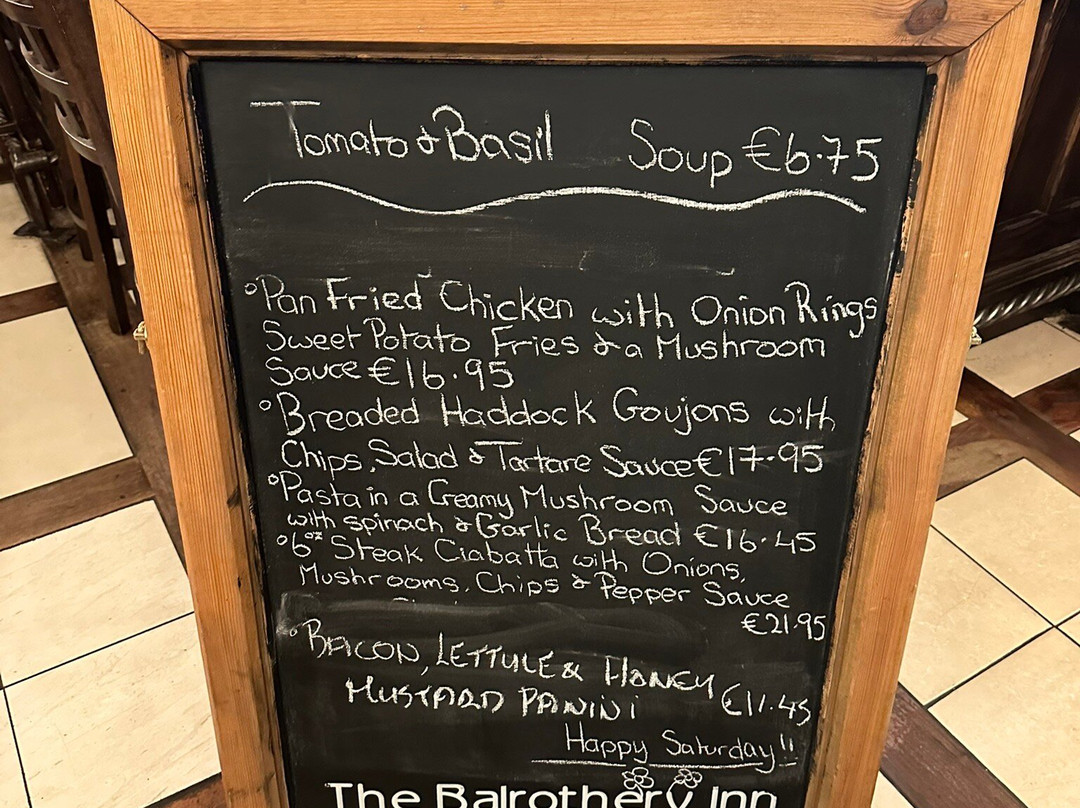 Tomato & Basil Soup €6.75
°Pan Fried Chicken with Onion Rings
Sweet Potato Fries & a Mushroom
Sauce €16.95
°Breaded Haddock Goujons with
Chips, Salad & Tartare Sauce €17.95
°Pasta in a Creamy Mushroom Sauce
with spinach & Garlic Bread €16.45
°6oz Steak Ciabatta with Onions,
Mushrooms, Chips & Pepper Sauce
€21.95
°BACON, LETTUCE & HONEY
MUSTARD PANINI €11.45
Happy Saturday!!
The Balrothery Inn